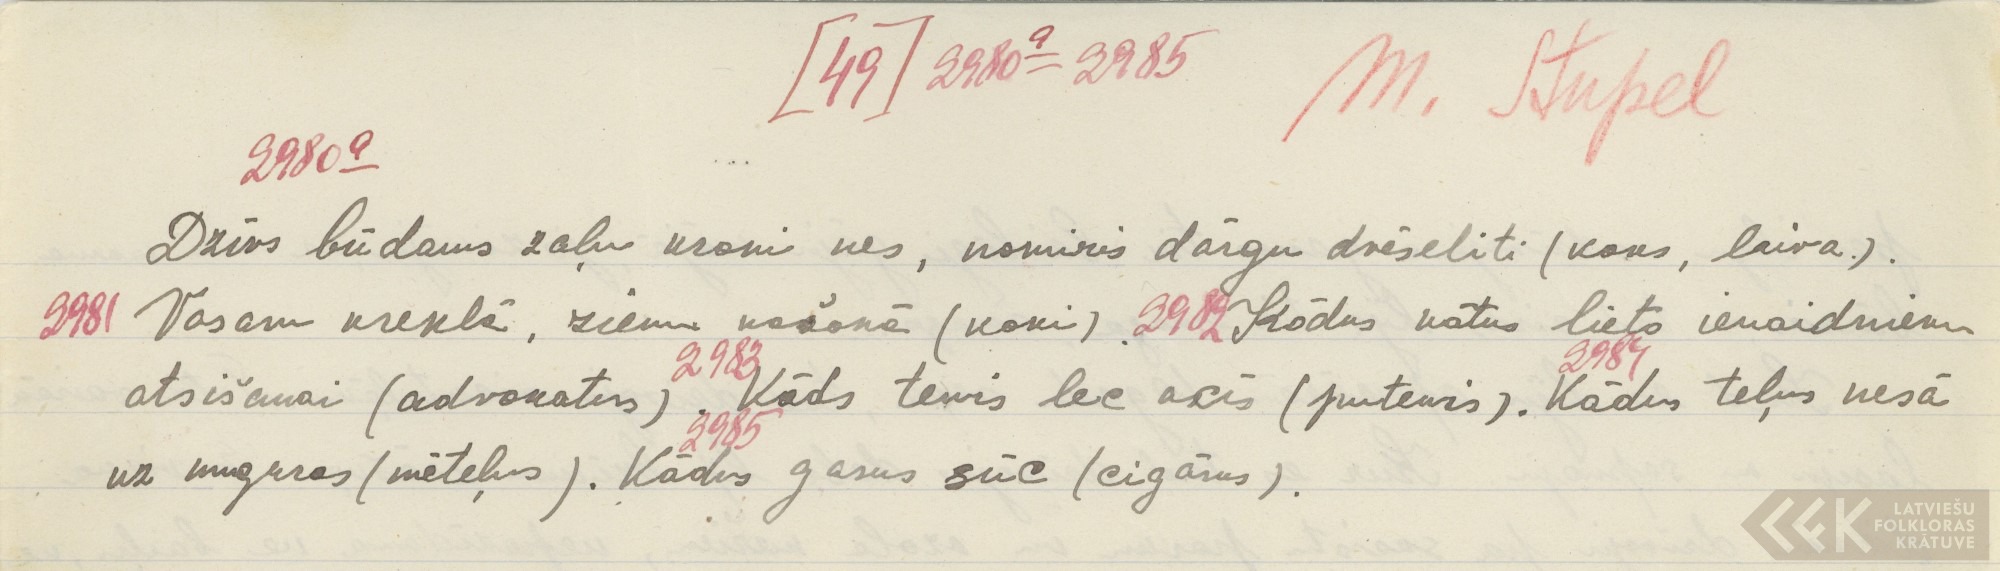 [49] 2980a = 2985 M. Stupel
2980a
Dzīvs būdams zaļu kroni nes, nomiris dārgu dvēselīti (koks, laiva.).
2981 Vasaru kreklā, ziemu kažokā (koki). 2982 Kādus katus lieto ienaidnieku
atsišanai (advokatus). 2983 Kāds tenis lec acīs (putenis). 2984 Kādus teļus nesā
uz muguras (mēteļus). 2985 Kādus garus sūc (cigārus).
LATVIEŠU
FOLKLORAS
KRĀTUVE